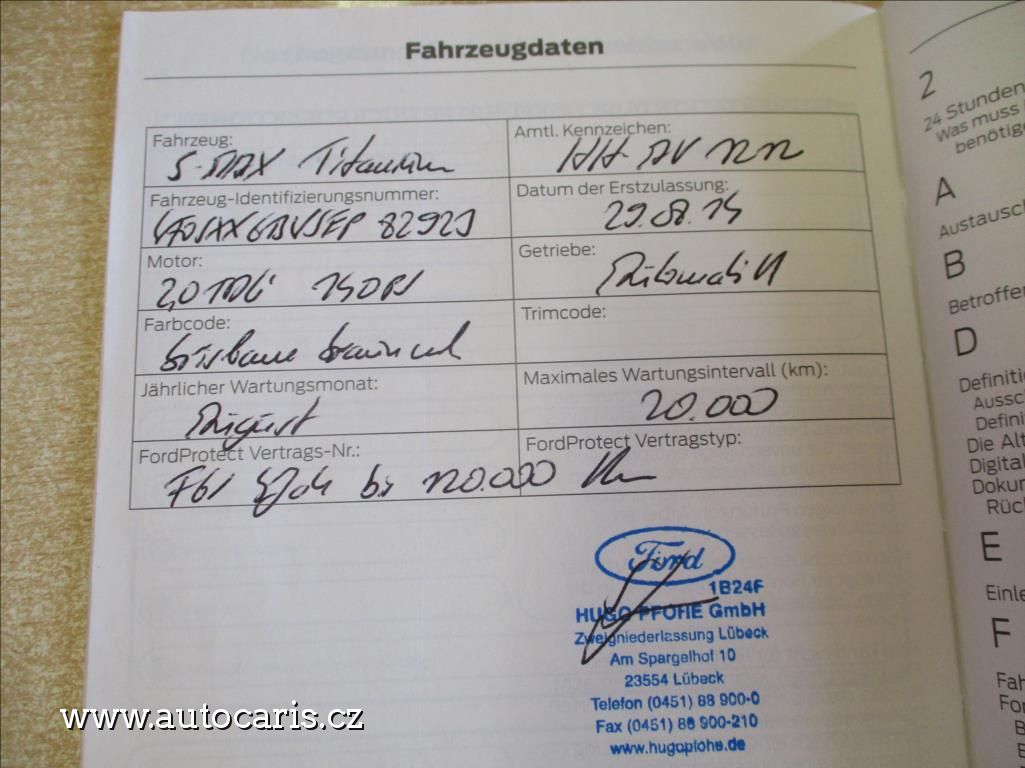 Fahrzeugdaten
Fahrzeug:
S-MAX Titanium
Amtl. Kennzeichen:
HH-
Fahrzeug-Identifizierungsnummer:
82929
Datum der Erstzulassung:
29.08.14
Motor:
2,0 TDCi 140PS
Getriebe:
Automatik
Farbcode:
brisbane braun
Trimcode:
Jährlicher Wartungsmonat:
August
Maximales Wartungsintervall (km):
20.000
FordProtect Vertrags-Nr.:
FordProtect Vertragstyp:
bis 120.000 Km
Ford
1B24F
HUGO PFOHE GmbH
Zweigniederlassung Lübeck
Am Spargelhof 10
23554 Lübeck
Telefon (0451) 88 900-0
Fax (0451) 88 900-210
www.hugopfohe.de
2
24 Stunden
Was muss
benötig
A
Austausch
B
Betroffen
D
Definitio
Aussc
Defini
Die Alt
Digital
Dokur
Rüc
E
Einle
F
Fah
For
www.autocaris.cz